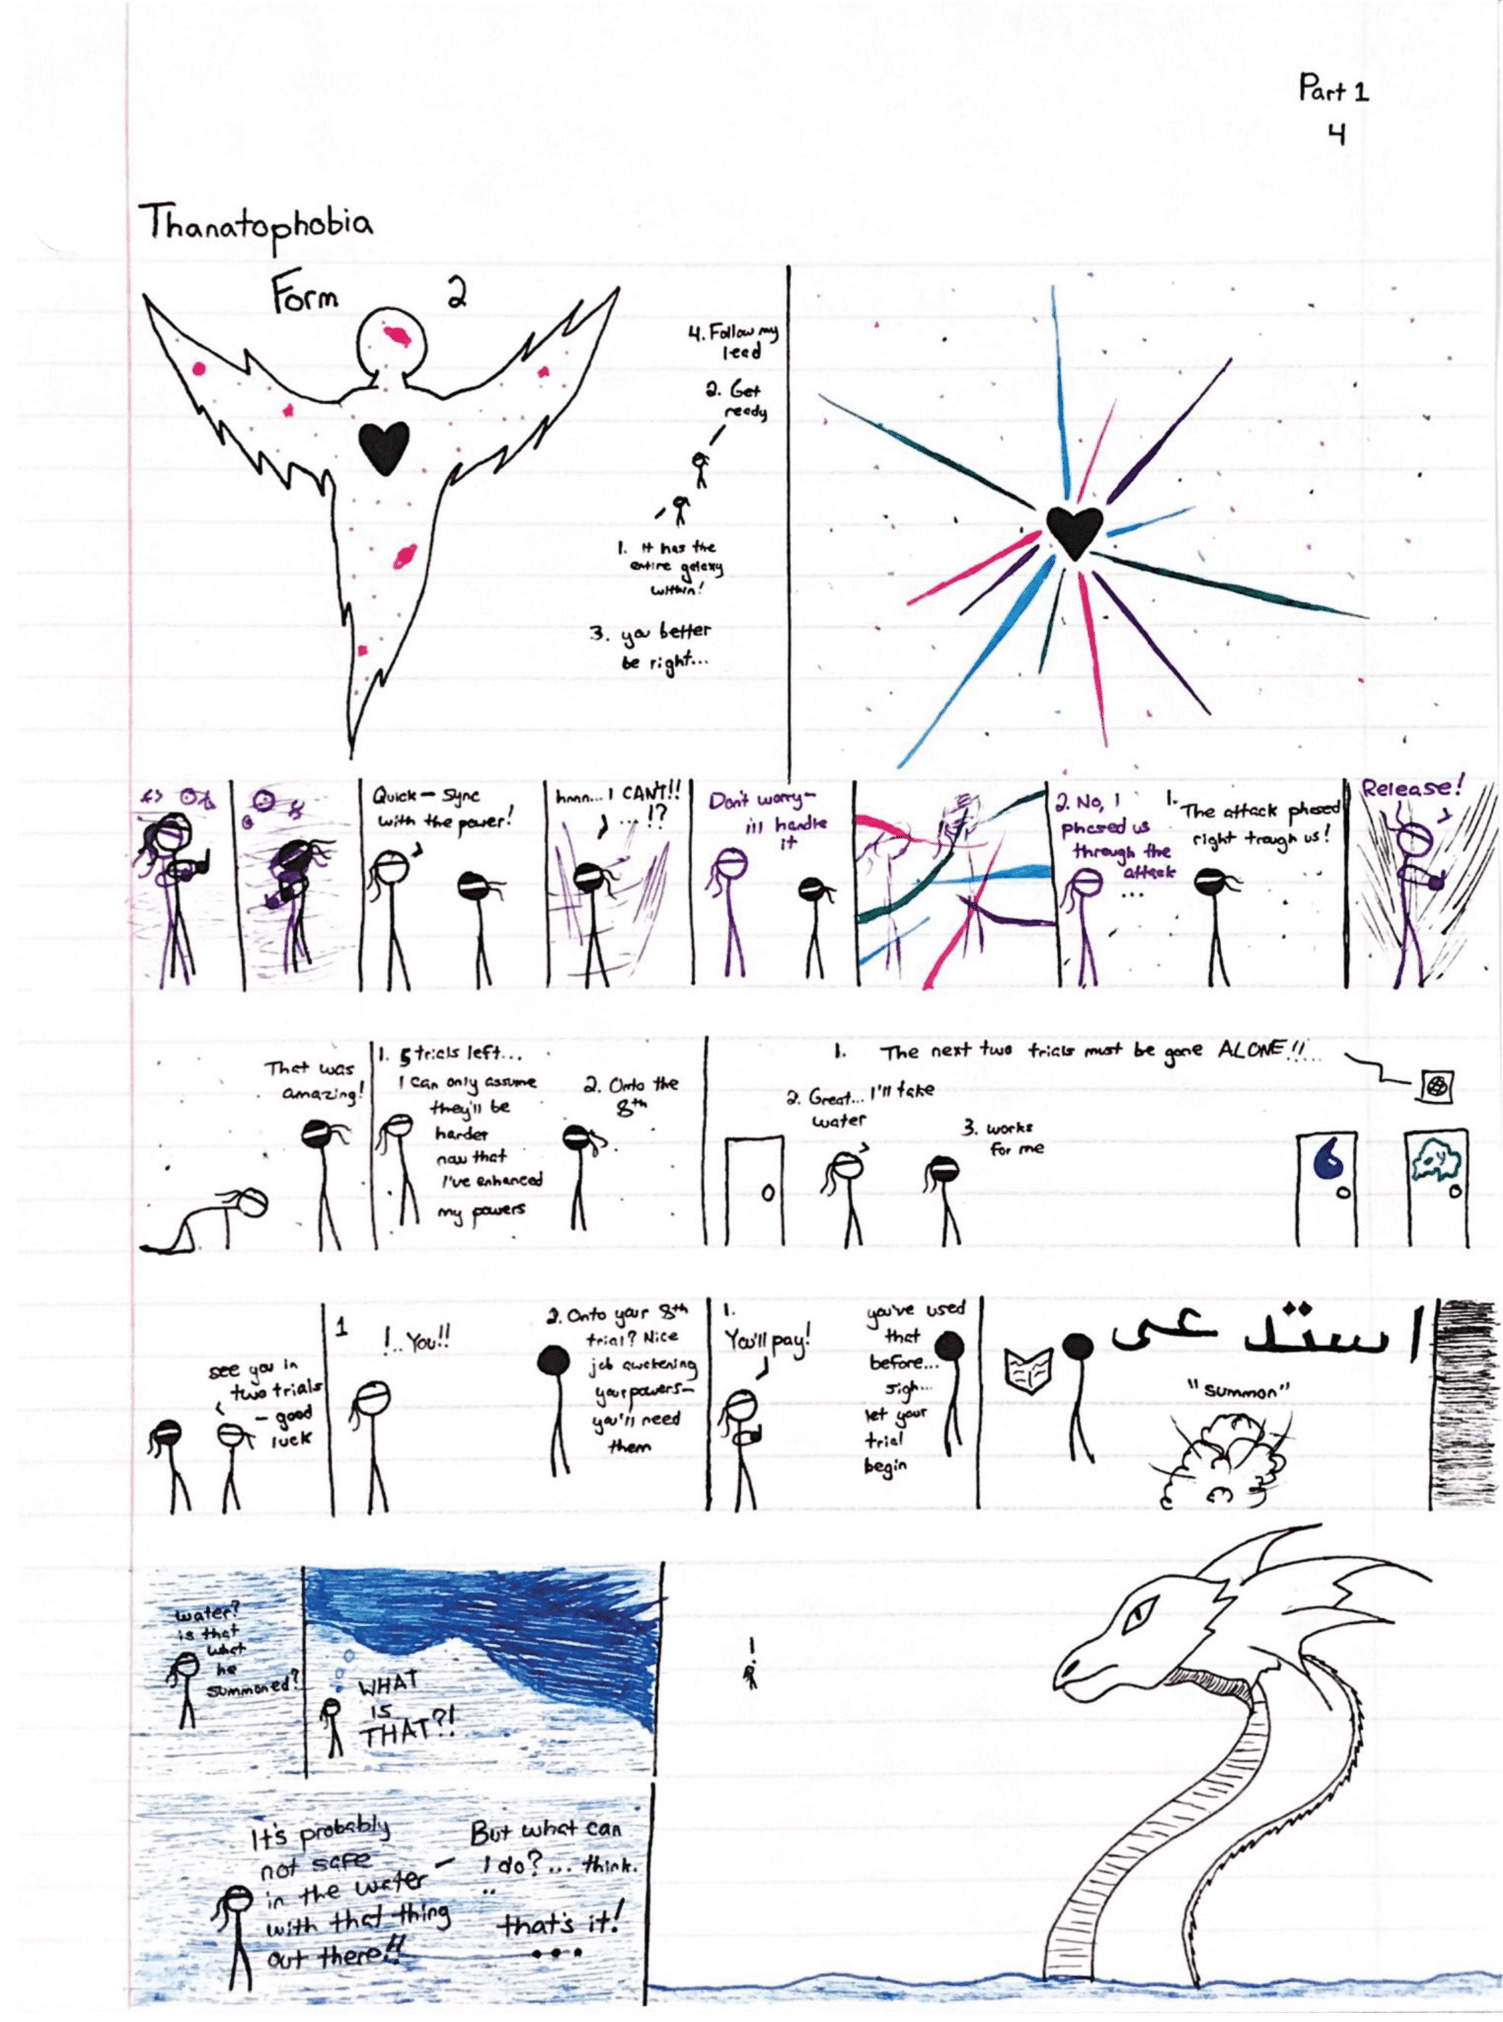 Part 1
4
Thanatophobia
Form 2
4. Follow my
lead
2. Get
ready
1. It has the
entire galaxy
within!
3. you better
be right...
Quick - sync
with the power!
hmn... I CANT!!
... !?
Don't worry-
ill handle
it
2. No, I
phased us
through the
attack
...
1. The attack phased
right trough us!
Release!
That was
amazing!
1. 5 trials left...
I can only assume
they'll be
harder
now that
I've enhanced
my powers
2. Onto the
8th
1. The next two trials must be gone ALONE!!...
2. Great... I'll take
water
3. works
for me
see you in
two trials
- good
luck
1
!.. You!!
2. Onto your 8th
trial? Nice
job awakening
your powers-
you'll need
them
1.
You'll pay!
you've used
that
before...
sigh...
let your
trial
begin
استدعى
"summon"
water?
is that
what
he
summoned?
WHAT
IS
THAT?!
!
It's probably
not safe
in the water -
with that thing
out there!!
But what can
I do?... think.
..
that's it!
...